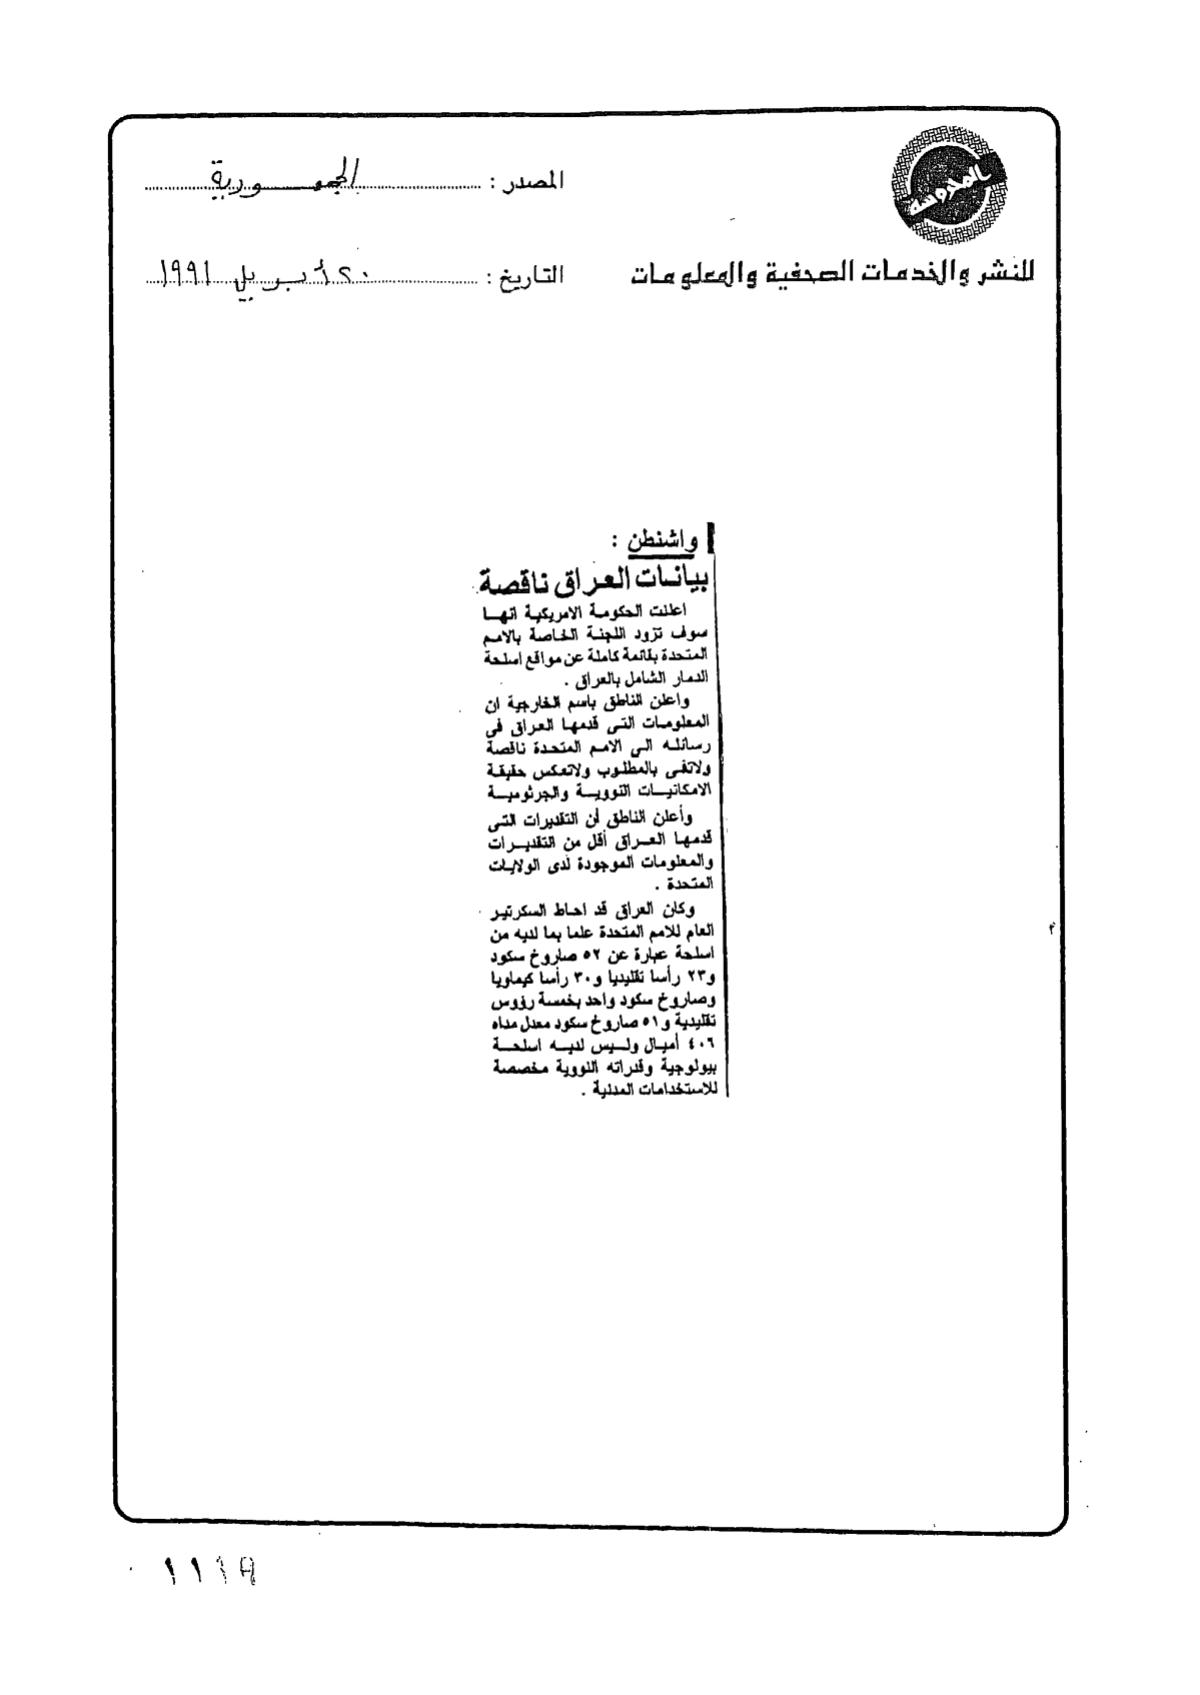 المحروسة
للنشر والخدمات الصحفية والمعلومات
المصدر : الجمهورية
التاريخ : ٢٠ أبريل ١٩٩١
واشنطن :
بيانات العراق ناقصة
اعلنت الحكومة الامريكية انها
سوف تزود اللجنة الخاصة بالامم
المتحدة بقائمة كاملة عن مواقع اسلحة
الدمار الشامل بالعراق .
واعلن الناطق باسم الخارجية ان
المعلومات التى قدمها العراق فى
رسائله الى الامم المتحدة ناقصة
ولاتفى بالمطلوب ولاتعكس حقيقة
الامكانيات النووية والجرثومية
وأعلن الناطق أن التقديرات التى
قدمها العراق أقل من التقديرات
والمعلومات الموجودة لدى الولايات
المتحدة .
وكان العراق قد احاط السكرتير
العام للامم المتحدة علما بما لديه من
اسلحة عبارة عن ٥٢ صاروخ سكود
و٢٣ رأسا تقليديا و٣٠ رأسا كيماويا
وصاروخ سكود واحد بخمسة رؤوس
تقليدية و٥١ صاروخ سكود معدل مداه
٤٠٦ أميال وليس لديه اسلحة
بيولوجية وقدراته النووية مخصصة
للاستخدامات المدنية .